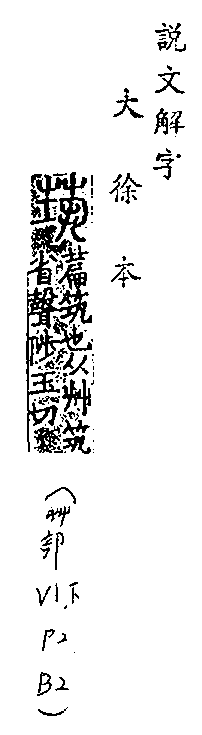 說文解字
大徐本
萹筑也从艸筑
省聲陟玉切
(艸部
V1.下
P2.
B2)